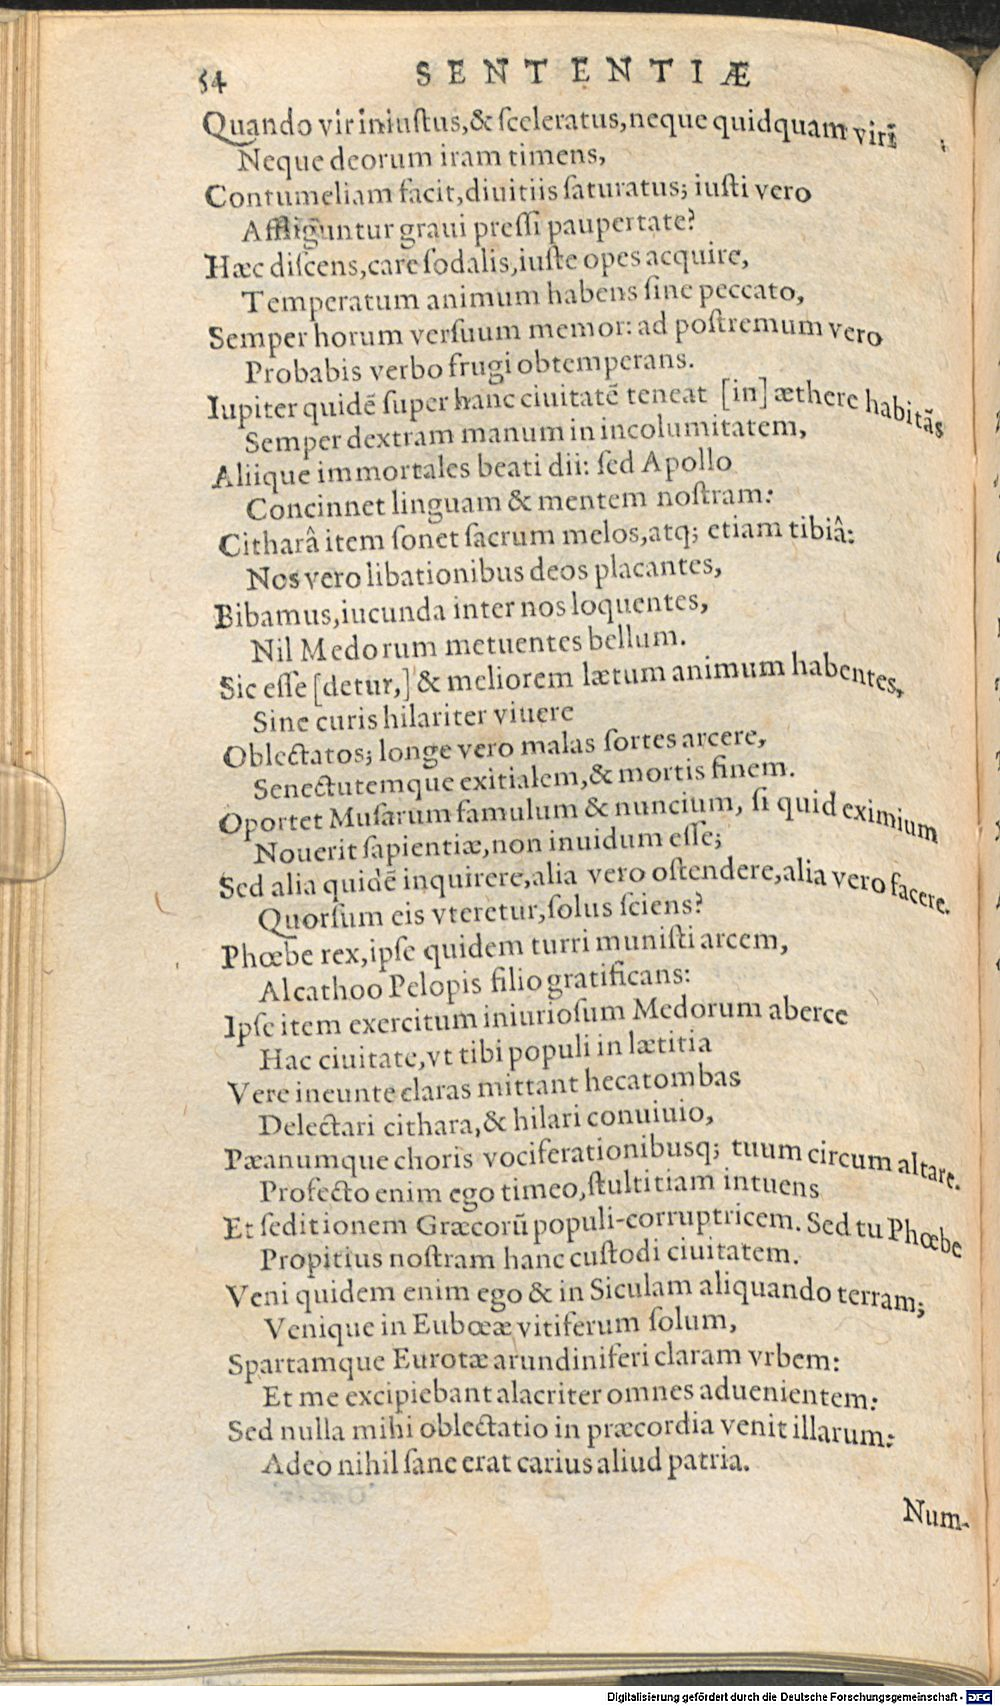 54 SENTENTIÆ
Quando vir iniuſtus,& ſceleratus,neque quidquam virī
Neque deorum iram timens,
Contumeliam facit,diuitiis ſaturatus; iuſti vero
Affliguntur graui preſſi paupertate?
Hæc diſcens,care ſodalis,iuſte opes acquire,
Temperatum animum habens ſine peccato,
Semper horum verſuum memor: ad poſtremum vero
Probabis verbo frugi obtemperans.
Iupiter quidē ſuper hanc ciuitatē teneat [in] æthere habitās
Semper dextram manum in incolumitatem,
Aliique immortales beati dii: ſed Apollo
Concinnet linguam & mentem noſtram:
Citharâ item ſonet ſacrum melos,atq; etiam tibiâ:
Nos vero libationibus deos placantes,
Bibamus,iucunda inter nos loquentes,
Nil Medorum metuentes bellum.
Sic eſſe [detur,] & meliorem lætum animum habentes,
Sine curis hilariter viuere
Oblectatos; longe vero malas ſortes arcere,
Senectutemque exitialem,& mortis finem.
Oportet Muſarum famulum & nuncium, ſi quid eximium
Nouerit ſapientiæ,non inuidum eſſe;
Sed alia quidē inquirere,alia vero oſtendere,alia vero facere.
Quorſum eis vteretur,ſolus ſciens?
Phœbe rex,ipſe quidem turri muniſti arcem,
Alcathoo Pelopis filio gratificans:
Ipſe item exercitum iniurioſum Medorum aberce
Hac ciuitate,vt tibi populi in lætitia
Vere ineunte claras mittant hecatombas
Delectari cithara,& hilari conuiuio,
Pæanumque choris vociferationibusq; tuum circum altare.
Profecto enim ego timeo,ſtultitiam intuens
Et ſeditionem Græcorū populi-corruptricem. Sed tu Phœbe
Propitius noſtram hanc cuſtodi ciuitatem.
Veni quidem enim ego & in Siculam aliquando terram;
Venique in Eubœæ vitiferum ſolum,
Spartamque Eurotæ arundiniferi claram vrbem:
Et me excipiebant alacriter omnes aduenientem:
Sed nulla mihi oblectatio in præcordia venit illarum:
Adeo nihil ſane erat carius aliud patria.
Num-
Digitalisierung gefördert durch die Deutsche Forschungsgemeinschaft - DFG